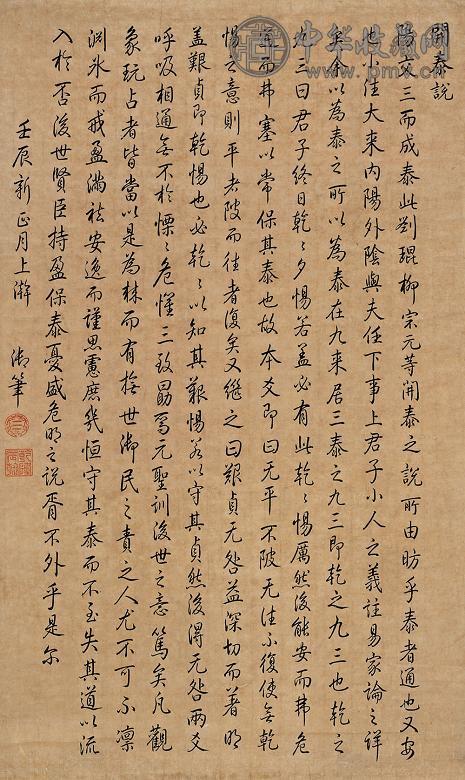 開泰說
陽爻三而成泰此劉琨柳宗元等開泰之說所由昉乎泰者通也又安
也小往大來內陽外陰與夫任下事上君子小人之義註易家論之詳
矣余以為泰之所以為泰在九來居三泰之九三即乾之九三也乾之
九三曰君子終日乾〻夕惕若蓋必有此乾〻惕厲然後能安而弗危
通而弗塞以常保其泰也故本爻即曰无平不陂无往不復使無乾
惕之意則平者陂而往者復矣又繼之曰艱貞无咎益深切而著明
蓋艱貞即乾惕也必乾〻以知其艱惕若以守其貞然後得无咎兩爻
呼吸相通無不於慄〻危懼三致勗焉元聖訓後世之意篤矣凡觀
象玩占者皆當以是為棘而有撫世御民之責之人尤不可不凜
淵冰而戒盈滿祛安逸而謹思慮庶幾恒守其泰而不至失其道以流
入於否後世賢臣持盈保泰憂盛危明之說胥不外乎是爾
壬辰新正月上澣
御筆
中华收藏网